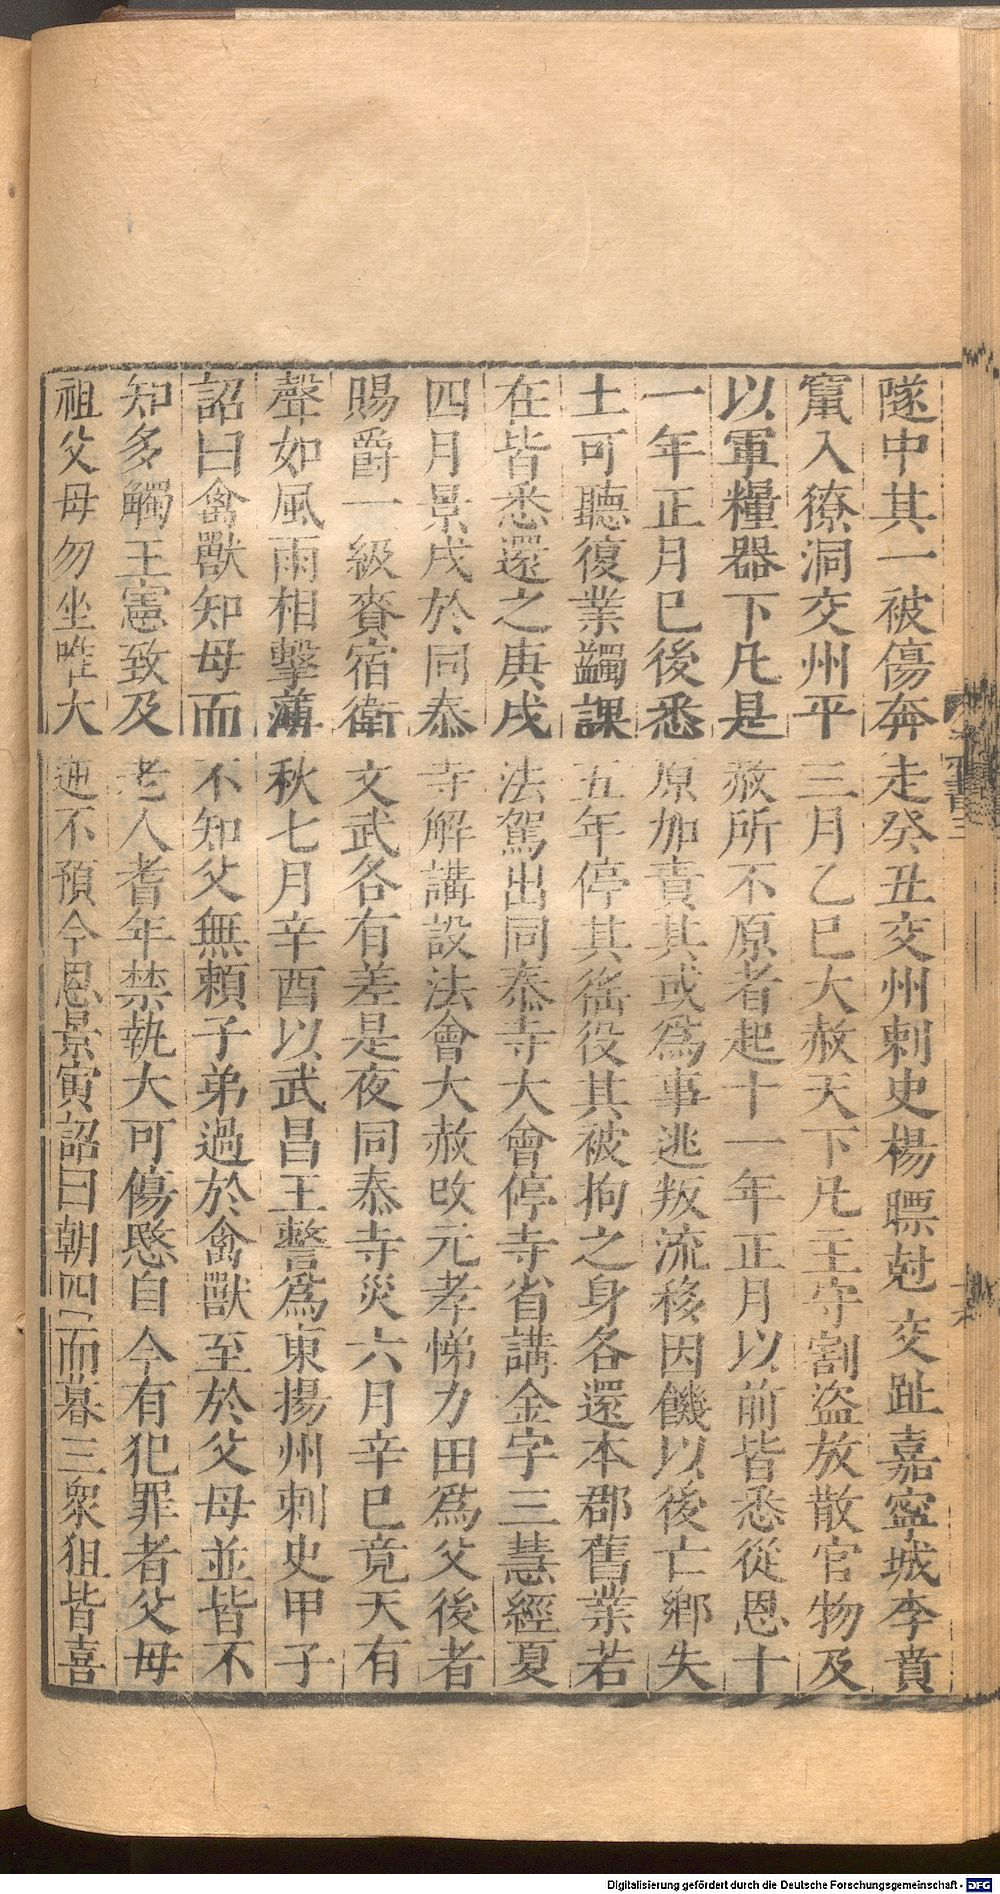 隧中其一被傷奔走癸丑交州刺史楊瞟尅交趾嘉寧城李賁
竄入獠洞交州平三月乙巳大赦天下凡主守割盜放散官物及
以軍糧器下凡是赦所不原者起十一年正月以前皆悉從恩十
一年正月巳後悉原加責其或爲事逃叛流移因饑以後亡鄉失
土可聽復業蠲課五年停其徭役其被拘之身各還本郡舊業若
在皆悉還之庚戌法駕出同泰寺大會停寺省講金字三慧經夏
四月景戌於同泰寺解講設法會大赦改元孝悌力田爲父後者
賜爵一級賚宿衛文武各有差是夜同泰寺災六月辛巳竟天有
聲如風雨相擊薄秋七月辛酉以武昌王警爲東揚州刺史甲子
詔曰禽獸知母而不知父無賴子弟過於禽獸至於父母並皆不
知多觸王憲致及老人耆年禁執大可傷愍自今有犯罪者父母
祖父母勿坐唯大逆不預今恩景寅詔曰朝四而暮三衆狙皆喜
Digitalisierung gefördert durch die Deutsche Forschungsgemeinschaft - DFG